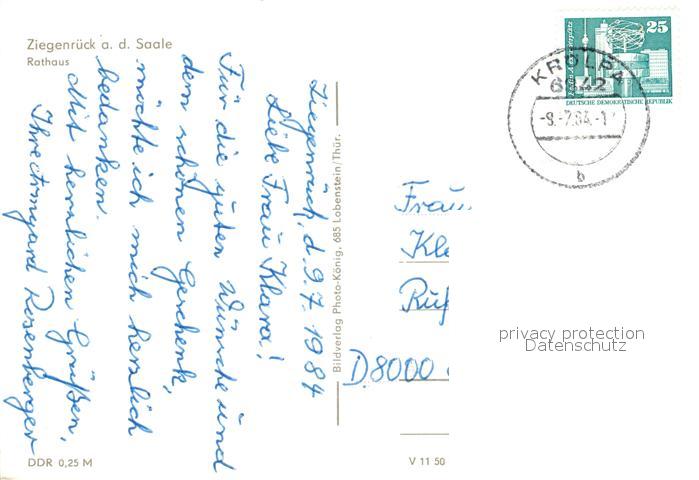 Ziegenrück a. d. Saale
Rathaus
Ziegenrück, d. 9.7.1984
Liebe Frau Klara!
Für die guten Wünsche und
dem schönen Geschenk,
möchte ich mich herzlich
bedanken.
Mit herzlichen Grüßen,
Ihre Irmgard Rosenberger
DDR 0,25 M
Bildverlag Photo-König, 685 Lobenstein/Thür.
V 11 50
25
DEUTSCHE DEMOKRATISCHE REPUBLIK
KRÖLPA
6842
b
Frau
Kle
D.8000
privacy protection
Datenschutz